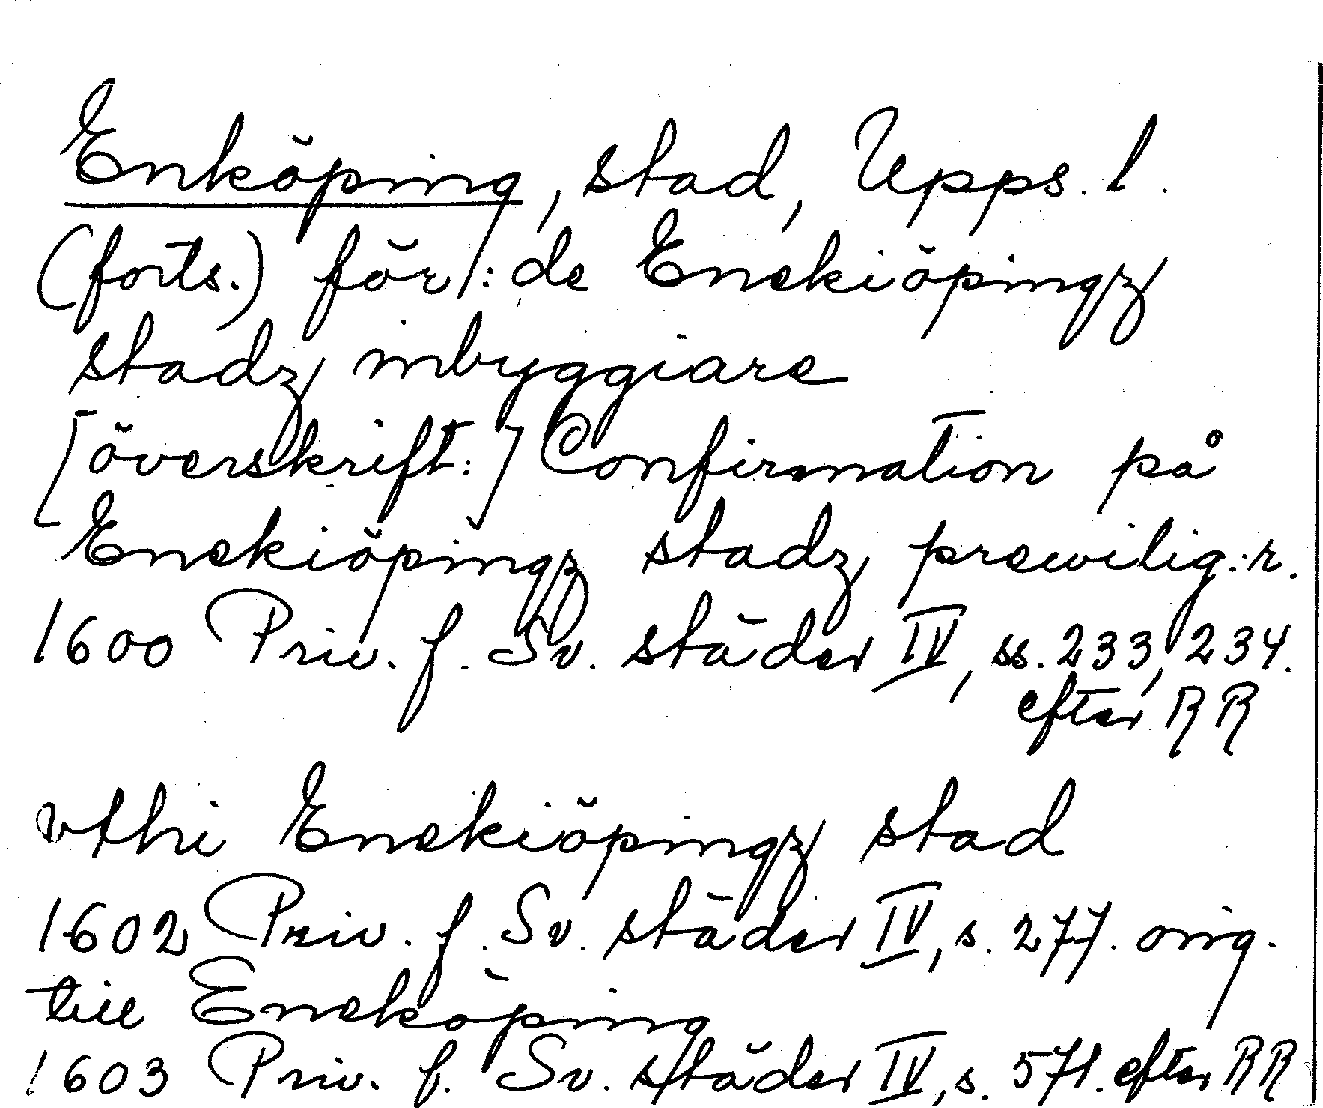 Enköping, stad, Upps. l.
(forts.) för/: de Enekiöpingz
stadz inbyggiare
[överskrift:] Confirmation på
Enekiöpingz stadz prewilig:r.
1600 Priv. f. Sv. städer IV, ss. 233, 234.
efter RR
vthi Enekiöpingz stad
1602 Priv. f. Sv. städer IV, s. 277. orig.
till Eneköping
1603 Priv. f. Sv. städer IV, s. 571. efter RR